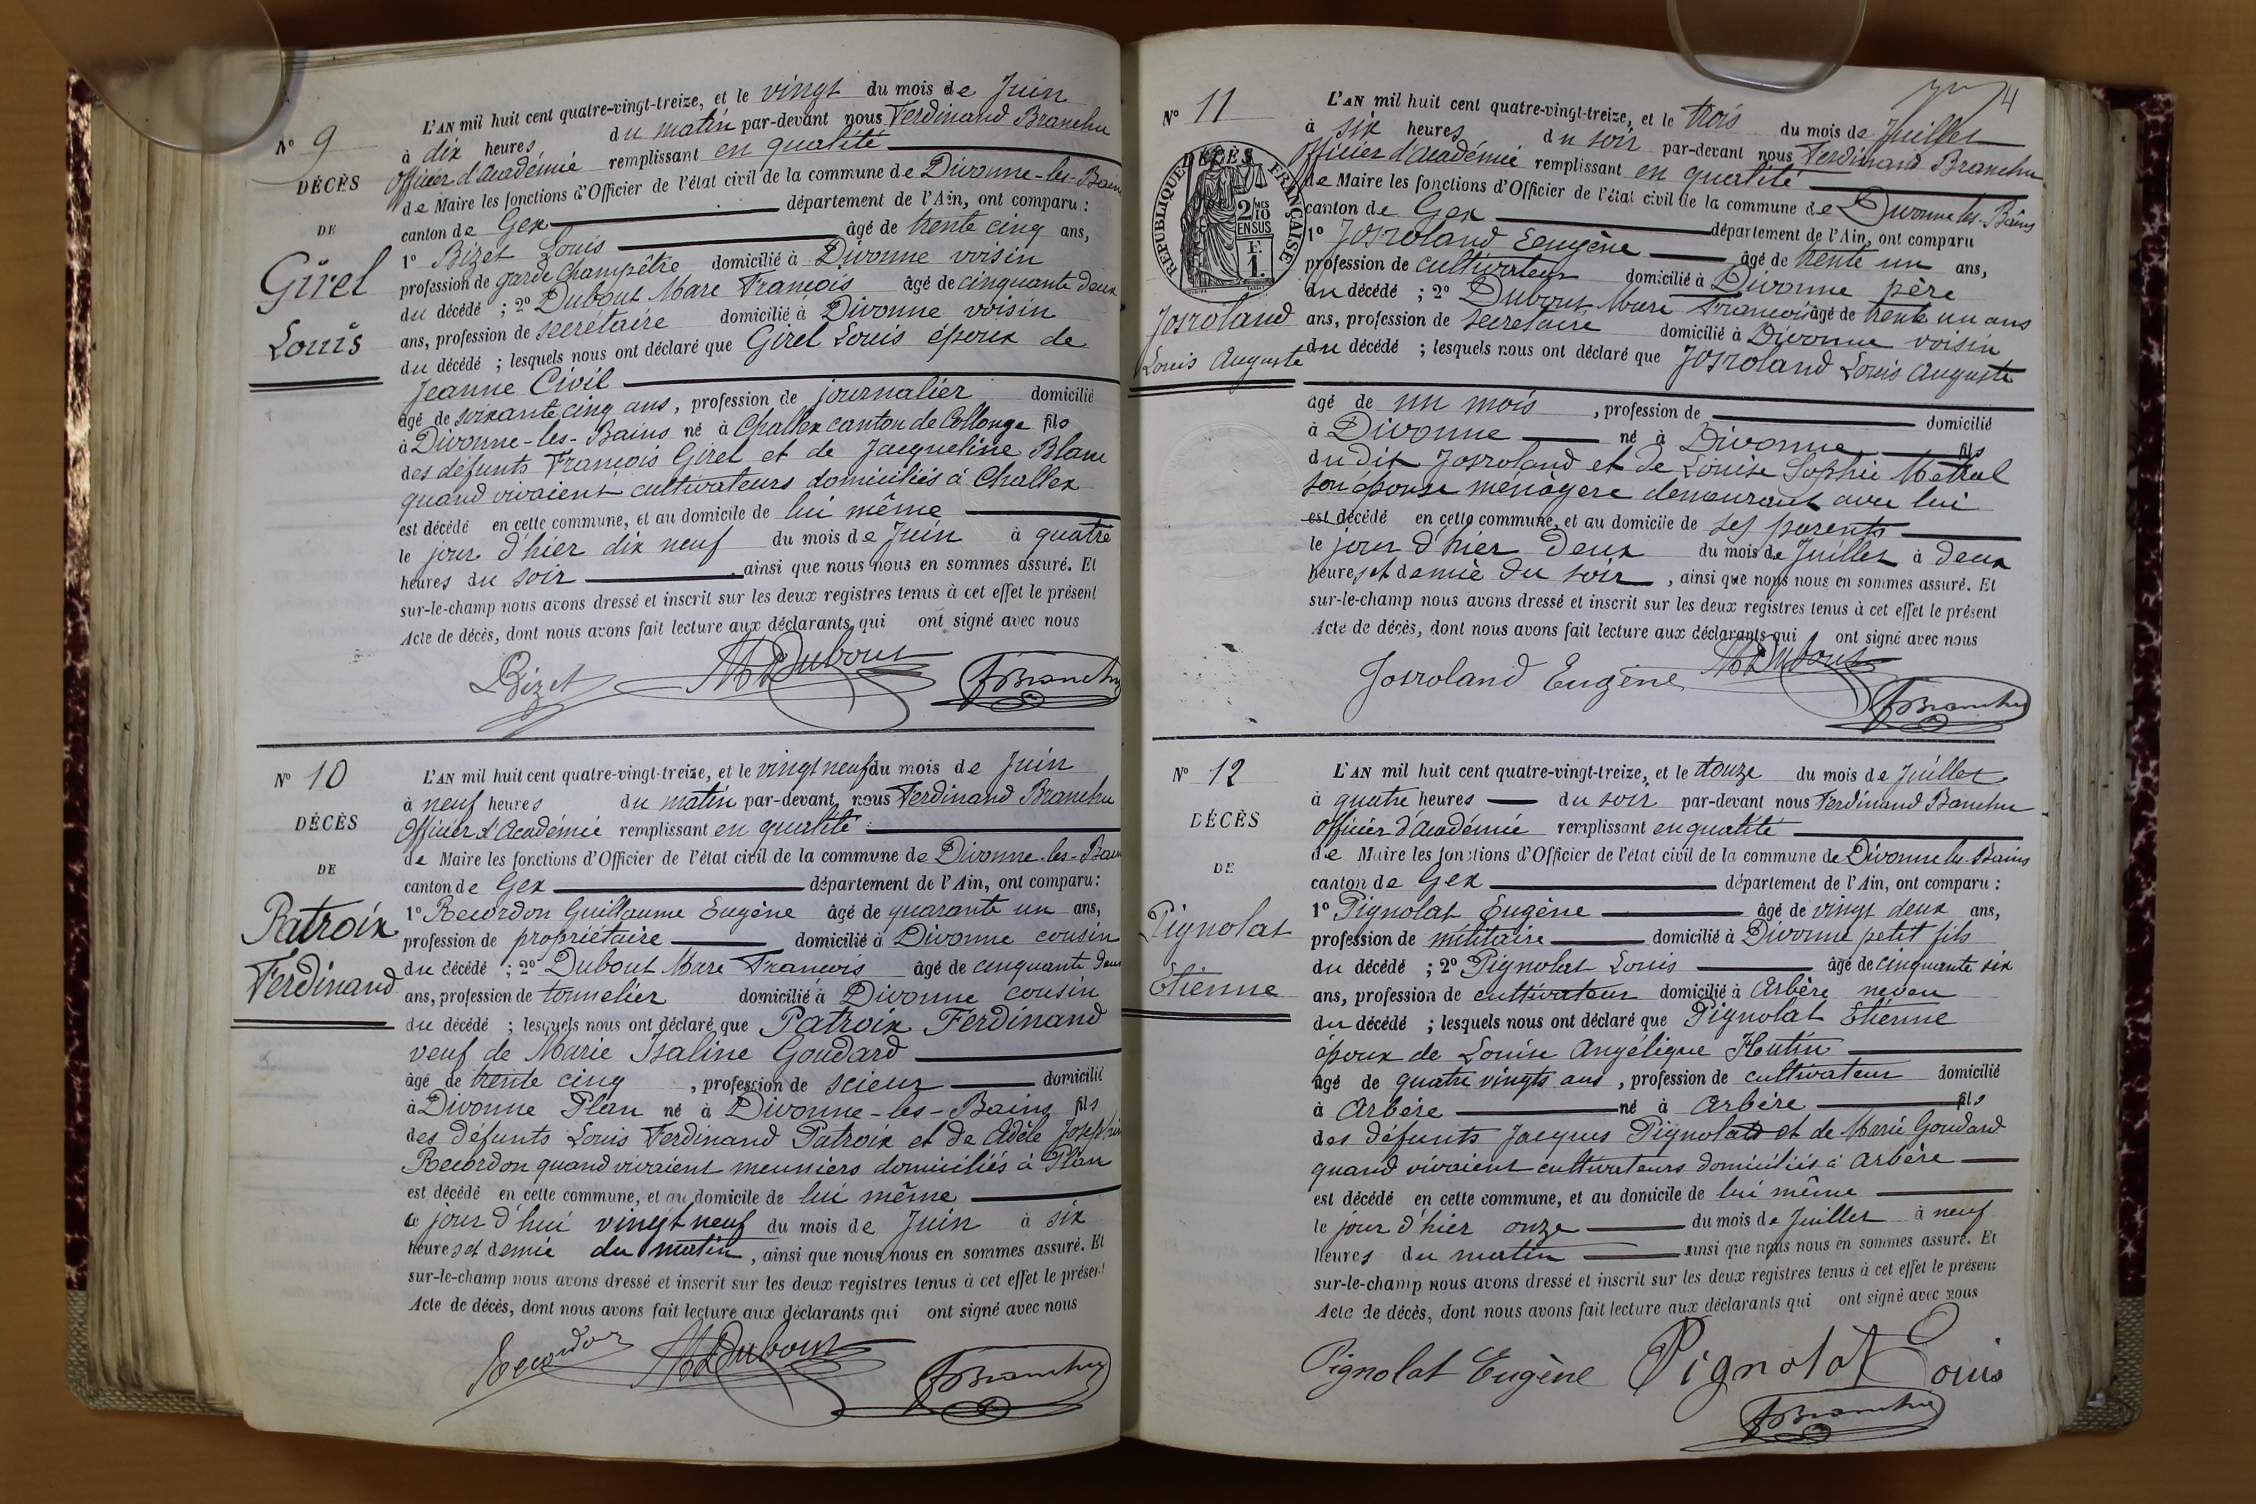 N° 9
DÉCÈS
DE
Girel
Louis
L'AN mil huit cent quatre-vingt-treize, et le vingt du mois de Juin
à dix heures du matin par-devant nous Ferdinand Branchu
Officier d'Académie remplissant en qualité
de Maire les fonctions d'Officier de l'état civil de la commune de Divonne-les-Bains
canton de Gex département de l'Ain, ont comparu :
1° Bizet Louis âgé de trente cinq ans,
profession de garde champêtre domicilié à Divonne voisin
du décédé ; 2° Dubout Marc François âgé de cinquante deux
ans, profession de secrétaire domicilié à Divonne voisin
du décédé ; lesquels nous ont déclaré que Girel Louis époux de
Jeanne Civil
âgé de soixante cinq ans, profession de journalier domicilié
à Divonne-les-Bains né à Challex canton de Collonge fils
des défunts François Girel et de Jacqueline Blanc
quand vivaient cultivateurs domiciliés à Challex
est décédé en cette commune, et au domicile de lui même
le jour d'hier dix neuf du mois de Juin à quatre
heures du soir , ainsi que nous nous en sommes assuré. Et
sur-le-champ nous avons dressé et inscrit sur les deux registres tenus à cet effet le présent
Acte de décès, dont nous avons fait lecture aux déclarants qui ont signé avec nous
LBizet MDubout FBranchu
N° 10
DÉCÈS
DE
Patroix
Ferdinand
L'AN mil huit cent quatre-vingt-treize, et le vingt neuf du mois de Juin
à neuf heures du matin par-devant nous Ferdinand Branchu
Officier d'Académie remplissant en qualité
de Maire les fonctions d'Officier de l'état civil de la commune de Divonne-les-Bains
canton de Gex département de l'Ain, ont comparu :
1° Recordon Guillaume Eugène âgé de quarante un ans,
profession de propriétaire domicilié à Divonne cousin
du décédé ; 2° Dubout Marc François âgé de cinquante deux
ans, profession de tonnelier domicilié à Divonne cousin
du décédé ; lesquels nous ont déclaré que Patroix Ferdinand
veuf de Marie Isaline Goudard
âgé de trente cinq , profession de scieur domicilié
à Divonne Plan né à Divonne-les-Bains fils
des défunts Louis Ferdinand Patroix et de Adèle Joséphine
Recordon quand vivaient meuniers domiciliés à Plan
est décédé en cette commune, et au domicile de lui même
ce jour d'hui vingt neuf du mois de Juin à six
heures et demie du matin , ainsi que nous nous en sommes assuré. Et
sur-le-champ nous avons dressé et inscrit sur les deux registres tenus à cet effet le présent
Acte de décès, dont nous avons fait lecture aux déclarants qui ont signé avec nous
Recordon MDubout FBranchu
4
N° 11
DÉCÈS
RÉPUBLIQUE FRANÇAISE
2 MES 10
EN SUS
F.
1.
Josroland
Louis Auguste
L'AN mil huit cent quatre-vingt-treize, et le trois du mois de Juillet
à six heures du soir par-devant nous Ferdinand Branchu
Officier d'Académie remplissant en qualité
de Maire les fonctions d'Officier de l'état civil de la commune de Divonne les-Bains
canton de Gex département de l'Ain, ont comparu
1° Josroland Eugène âgé de trente un ans,
profession de cultivateur domicilié à Divonne père
du décédé ; 2° Dubout Marc François âgé de trente un ans
ans, profession de secrétaire domicilié à Divonne voisin
du décédé ; lesquels nous ont déclaré que Josroland Louis Auguste
âgé de un mois , profession de domicilié
à Divonne né à Divonne fils
du dit Josroland et de Louise Sophie Métral
son épouse ménagère demeurant avec lui
est décédé en cette commune, et au domicile de ses parents
le jour d'hier deux du mois de Juillet à deux
heures et demie du soir , ainsi que nous nous en sommes assuré. Et
sur-le-champ nous avons dressé et inscrit sur les deux registres tenus à cet effet le présent
Acte de décès, dont nous avons fait lecture aux déclarants qui ont signé avec nous
Josroland Eugène MDubout
FBranchu
N° 12
DÉCÈS
DE
Pignolat
Etienne
L'AN mil huit cent quatre-vingt-treize, et le douze du mois de Juillet
à quatre heures du soir par-devant nous Ferdinand Banchu
Officier d'Académie remplissant en qualité
de Maire les fonctions d'Officier de l'état civil de la commune de Divonne les-Bains
canton de Gex département de l'Ain, ont comparu :
1° Pignolat Eugène âgé de vingt deux ans,
profession de militaire domicilié à Divonne petit fils
du décédé ; 2° Pignolat Louis âgé de cinquante six
ans, profession de cultivateur domicilié à Arbère neveu
du décédé ; lesquels nous ont déclaré que Pignolat Etienne
époux de Louise Angélique Hutin
âgé de quatre vingts ans , profession de cultivateur domicilié
à Arbère né à Arbère fils
des défunts Jacques Pignolat et de Marie Goudard
quand vivaient cultivateurs domiciliés à Arbère
est décédé en cette commune, et au domicile de lui même
le jour d'hier onze du mois de Juillet à neuf
heures du matin ainsi que nous nous en sommes assuré. Et
sur-le-champ nous avons dressé et inscrit sur les deux registres tenus à cet effet le présent
Acte de décès, dont nous avons fait lecture aux déclarants qui ont signé avec nous
Pignolat Eugène Pignolat Louis
FBranchu